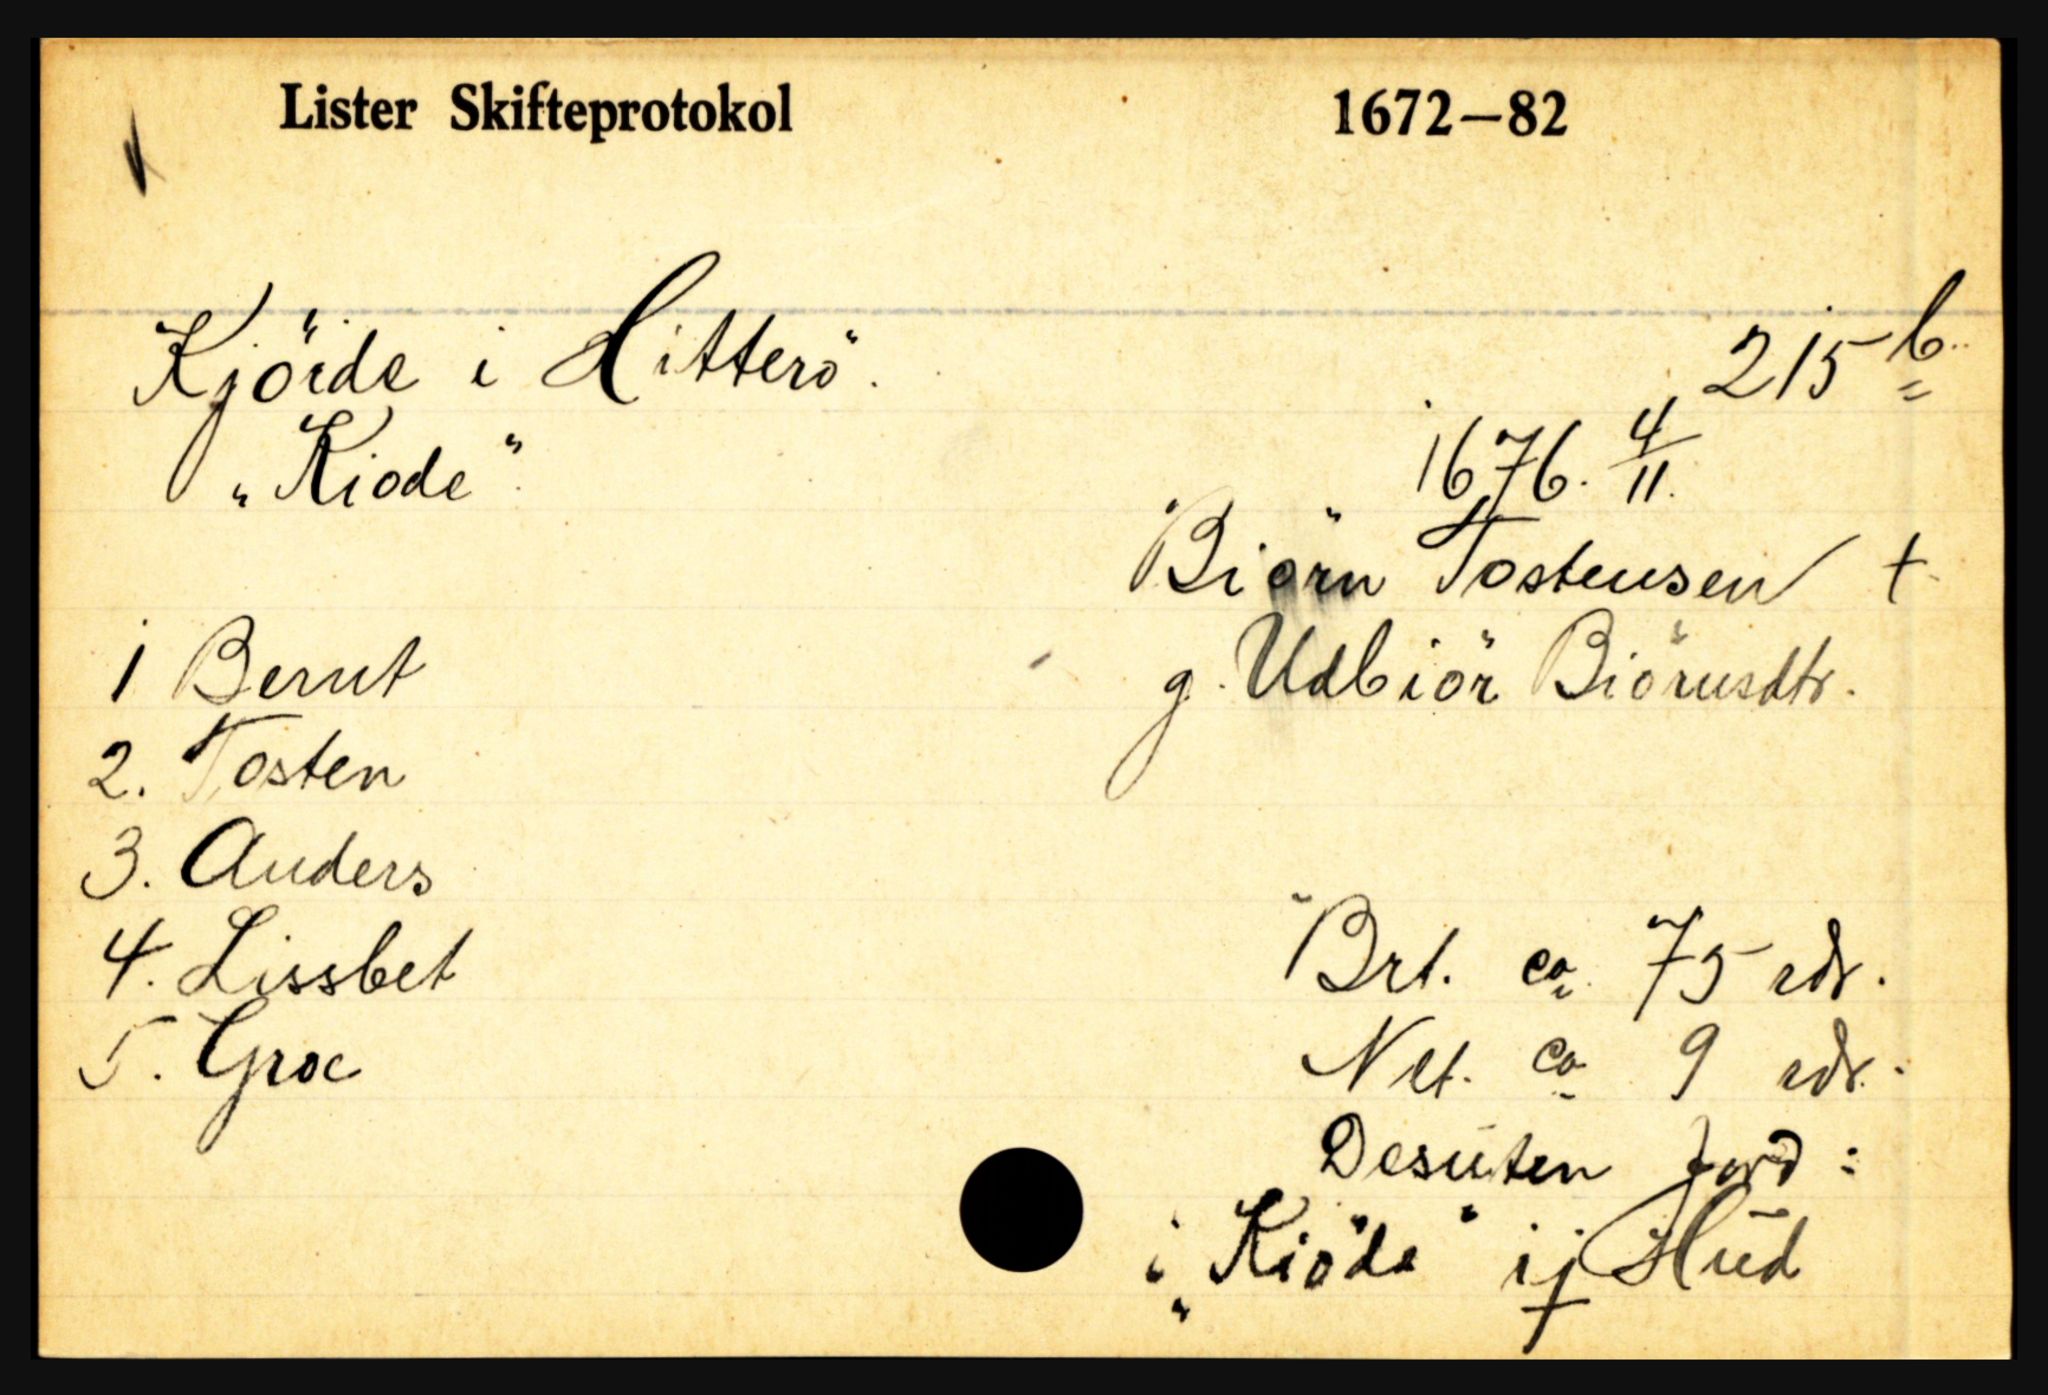 Lister Skifteprotokol 1672–82
Kjörde i Hitterö. 215 b.
"Kiode". 1676. 4/11.
Biörn Tostensen †
g. Udbiör Biörnsdtr.
1 Bernt
2. Tosten
3. Anders
4. Lissbet
5. Groe
Brt. ca. 75 rdr.
Net. ca 9 rdr.
Desuten Jord:
i "Kiöde" ij Hud